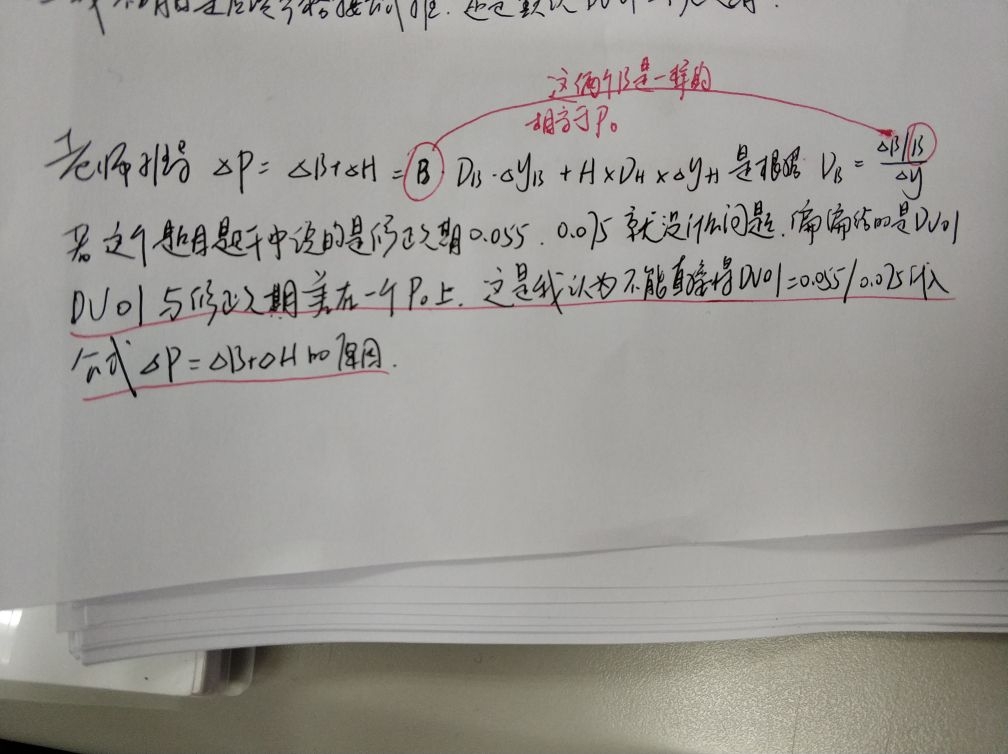 这俩个B是一样的
相当于P₀
老师推导 ΔP = ΔB+ΔH = B · D_B · Δy_B + H × D_H × Δy_H 是根据 D_B = (ΔB/B)/Δy
若这个题目题干中说的是修正久期0.055、0.075就没什么问题,偏偏给的是DV01
DV01与修正久期差在一个P₀上,这是我认为不能直接将DV01=0.055/0.075代入
公式ΔP=ΔB+ΔH的原因.